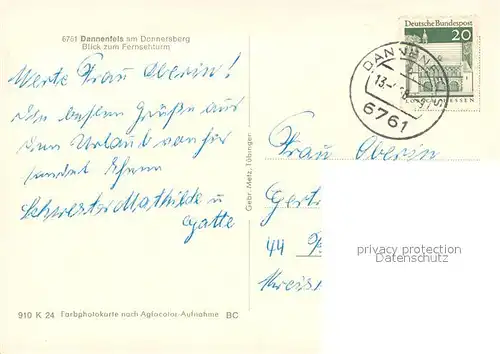 6761 Dannenfels am Donnersberg
Blick zum Fernsehturm
Werte Frau Oberin!
Die besten Grüße aus
dem Urlaub von hier
sendet Ihnen
Schwester Mathilde u
Gatte
Gebr. Metz, Tübingen
910 K 24 Farbphotokarte nach Agfacolor-Aufnahme BC
Deutsche Bundespost
20
DANNENFELS
13.-
6761
Frau Oberin
Gertr
44
Kreis
privacy protection
Datenschutz